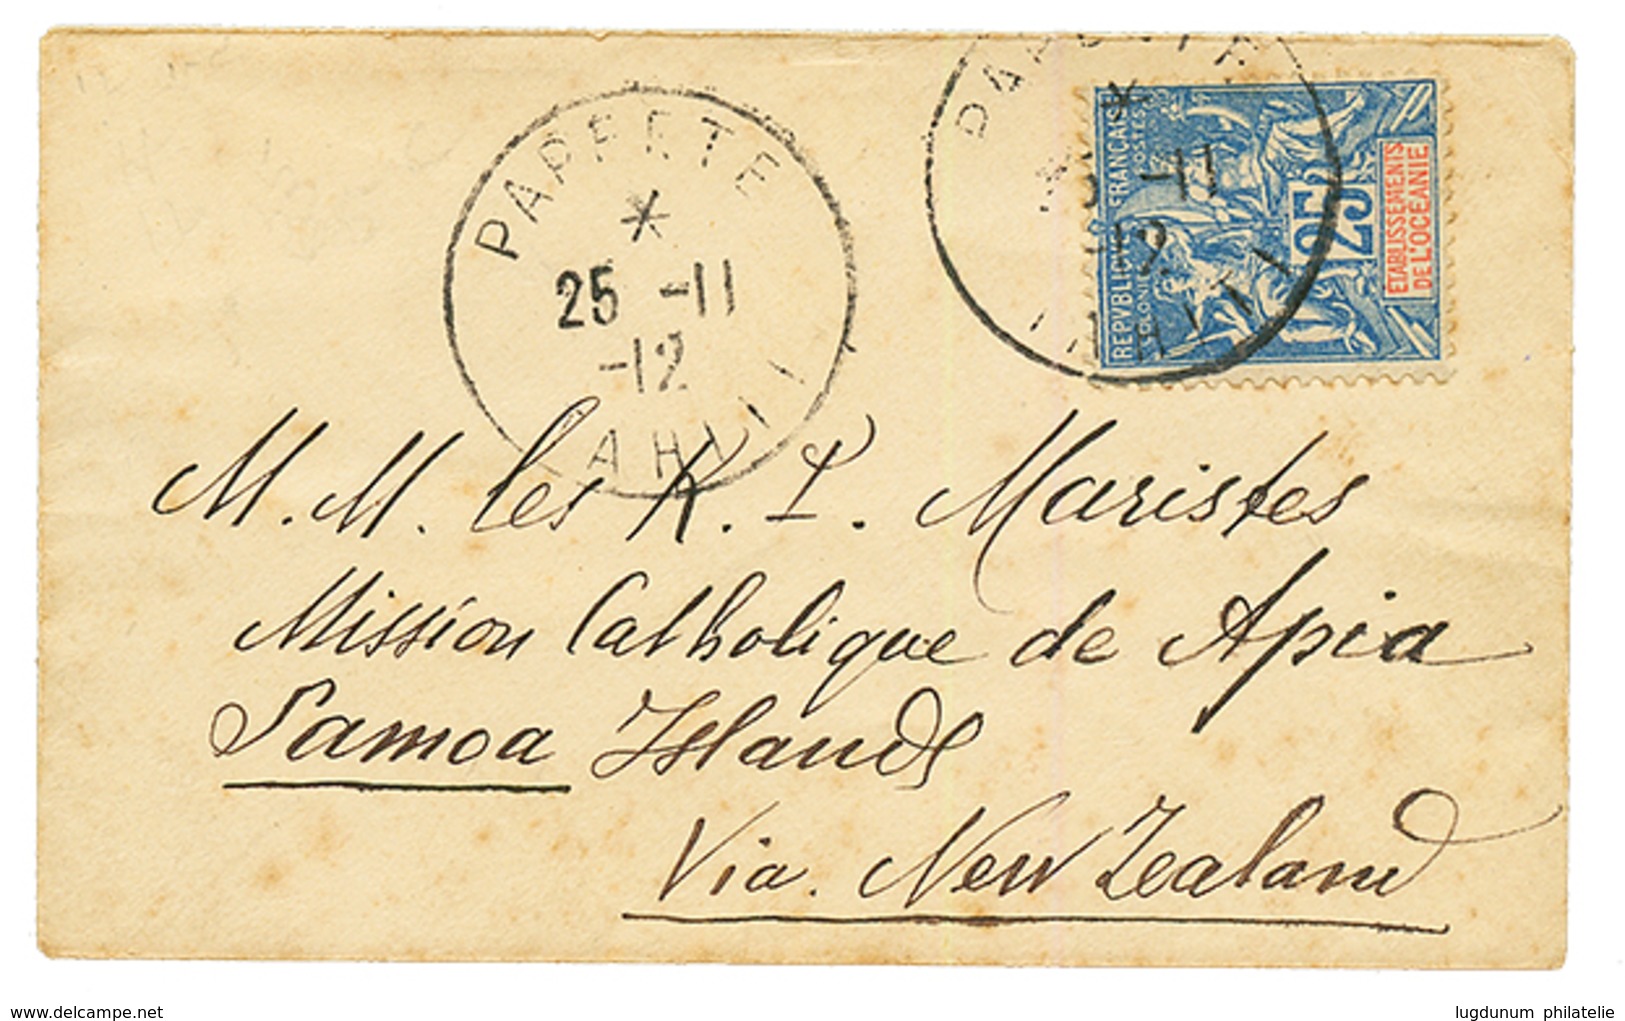 PAPEETE
*
25 -11
-12
TAHITI
PAPEETE
*
-11
-12
TAHITI
REPVBLIQUE FRANÇAISE
COLONIES POSTES
25
ETABLISSEMENTS
DE L'OCÉANIE
M. M. les R. P. Maristes
Mission Catholique de Apia
Samoa Islands
Via. New Zealand
www.delcampe.net
lugdunum philatelie